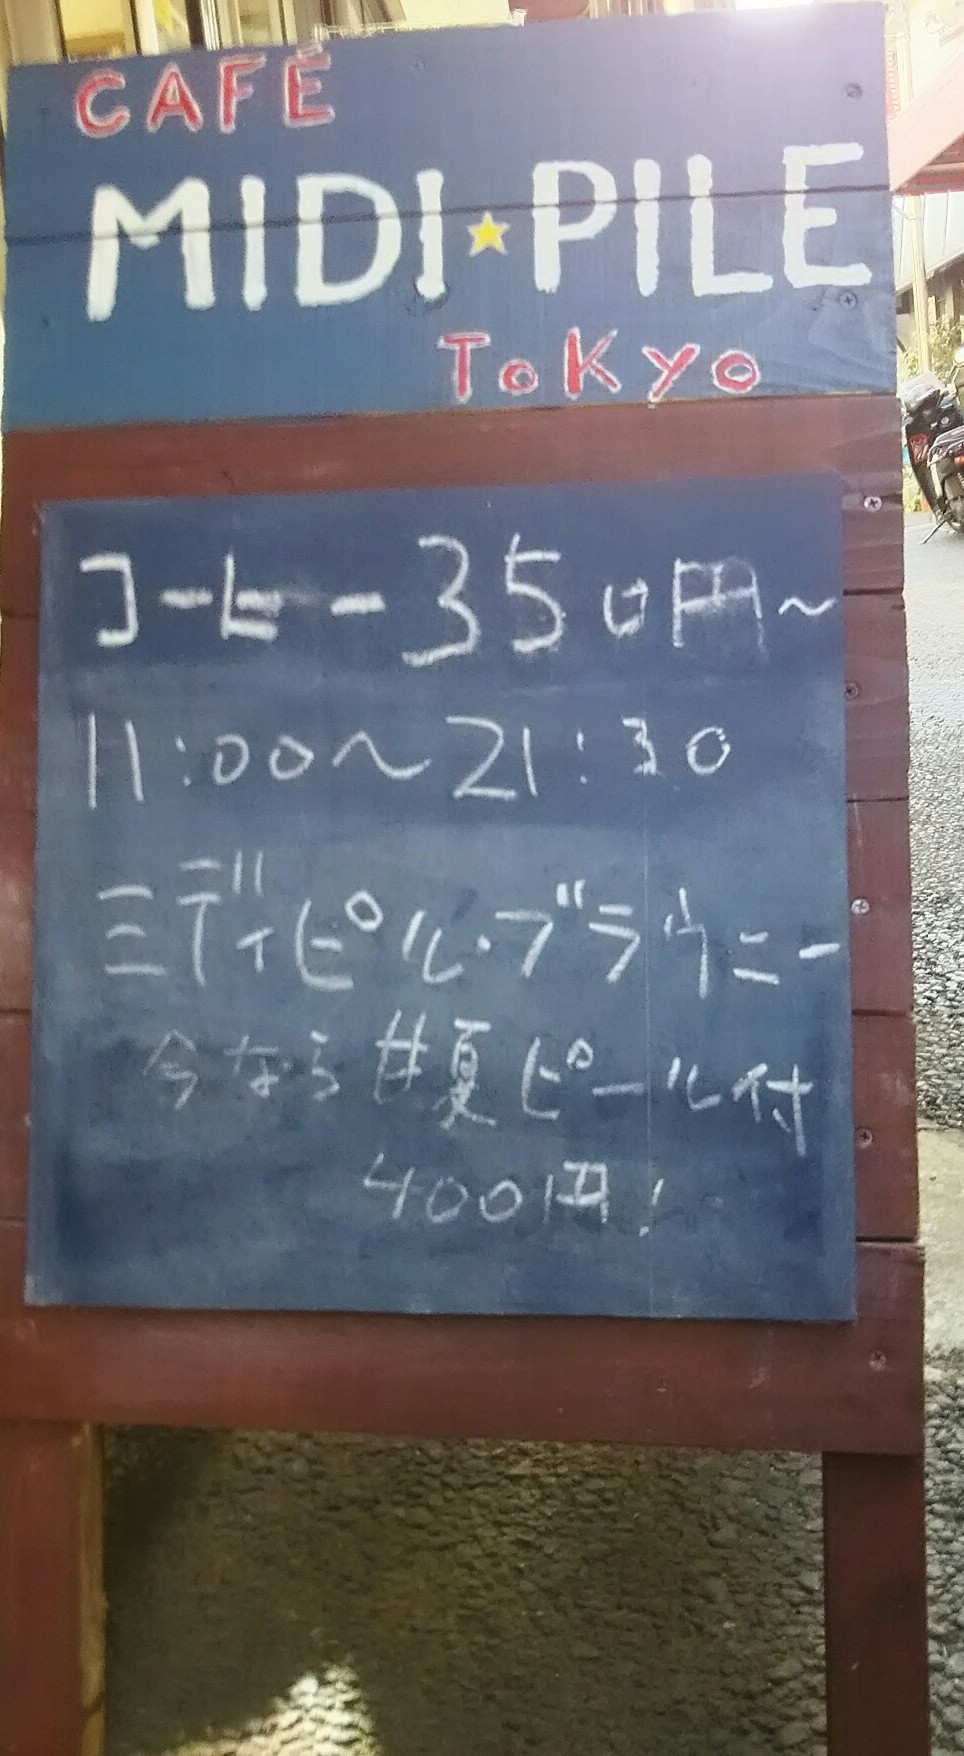 CAFÉ
MIDI★PILE
TOKYO
コーヒー350円~
11:00~21:30
ミディピル・ブラウニー
今なら甘夏ピール付
400円!